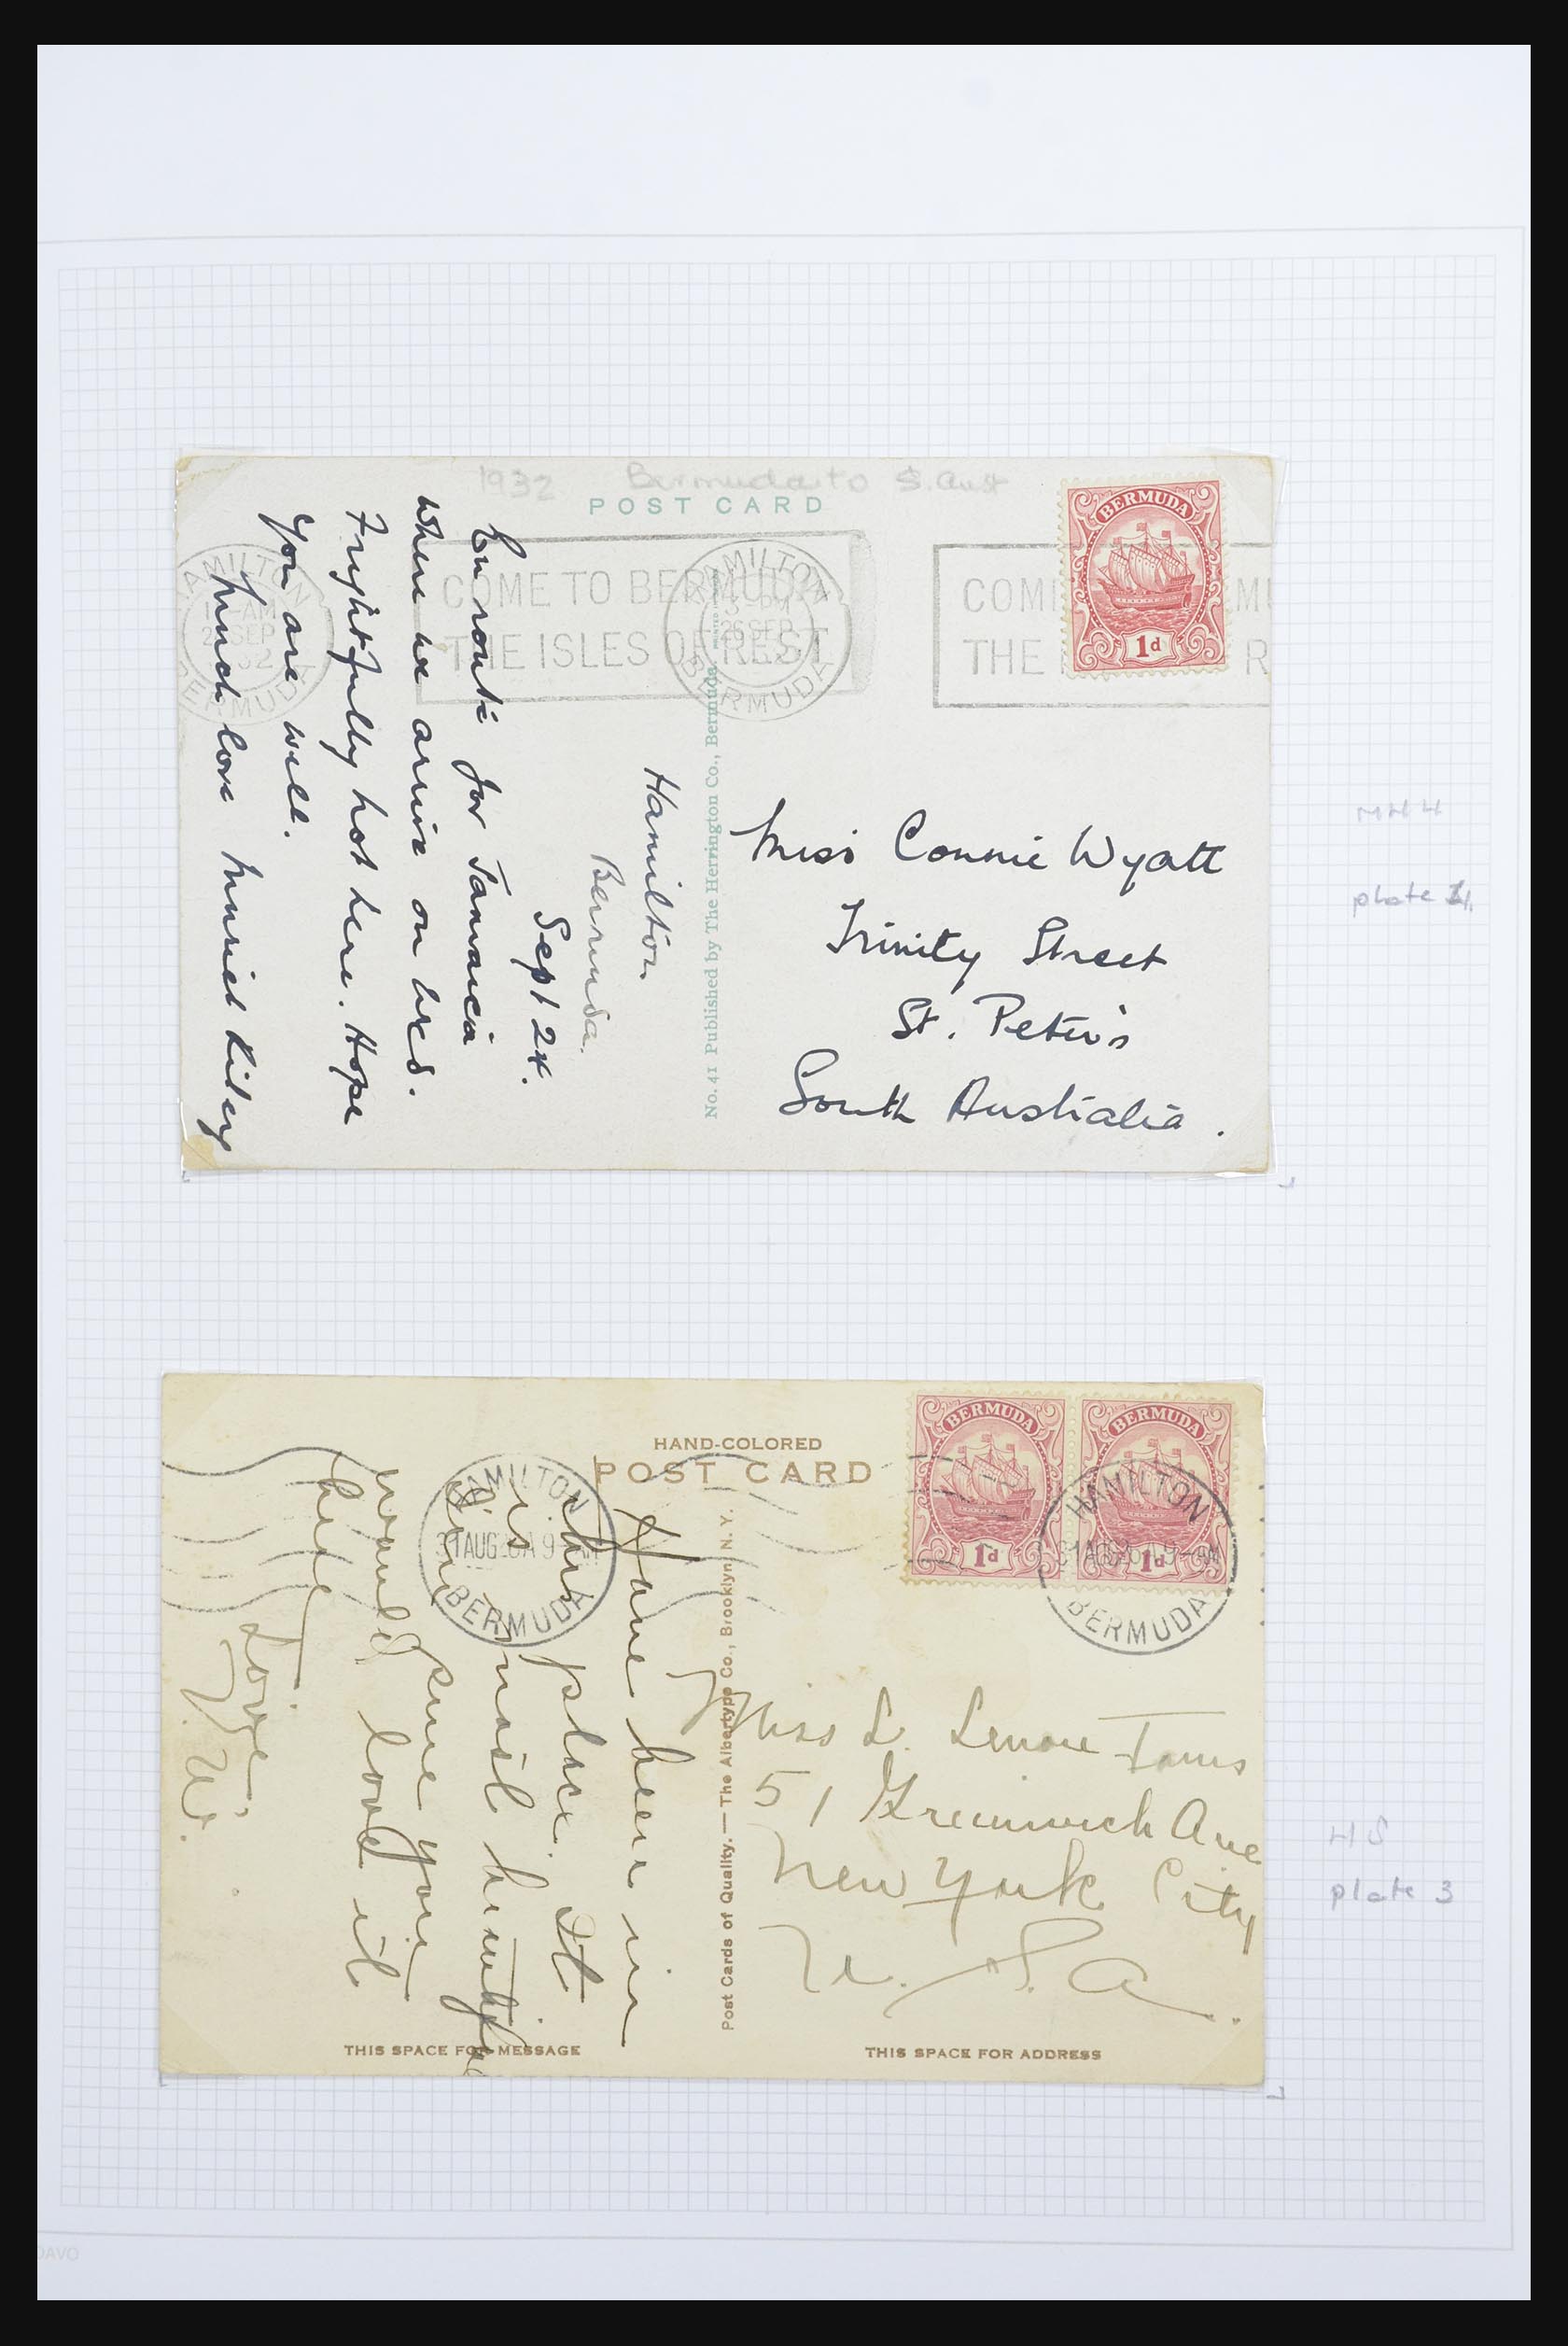 1932 Bermuda to S. Aust
POST CARD
BERMUDA
1d
HAMILTON
AM
SEP
BERMUDA
COME TO BERMUDA
THE ISLES OF REST
HAMILTON
3-PM
26 SEP
BERMUDA
COM
THE
R
Hamilton.
Bermuda.
Sept 24.
En route for Jamaica
when we arrive on Wed.
Frightfully hot here. Hope
you are well.
Much love Muriel
No. 41 Published by The Herrington Co., Bermuda.
Miss Connie Wyatt
Trinity Street
St. Peter's
South Australia.
MH 4
plate
HAND-COLORED
POST CARD
BERMUDA
1d
BERMUDA
1d
HAMILTON
31 AUG 9
BERMUDA
HAMILTON
AM
BERMUDA
Have been in
this place. It
is most beautiful
Sure you
would love it
here
Love
W.
Post Cards of Quality. — The Albertype Co., Brooklyn N. Y.
Miss L. Lenore
51 Greenwich Ave
New York City
U. S. A.
THIS SPACE FOR MESSAGE
THIS SPACE FOR ADDRESS
HS
plate 3
DAVO